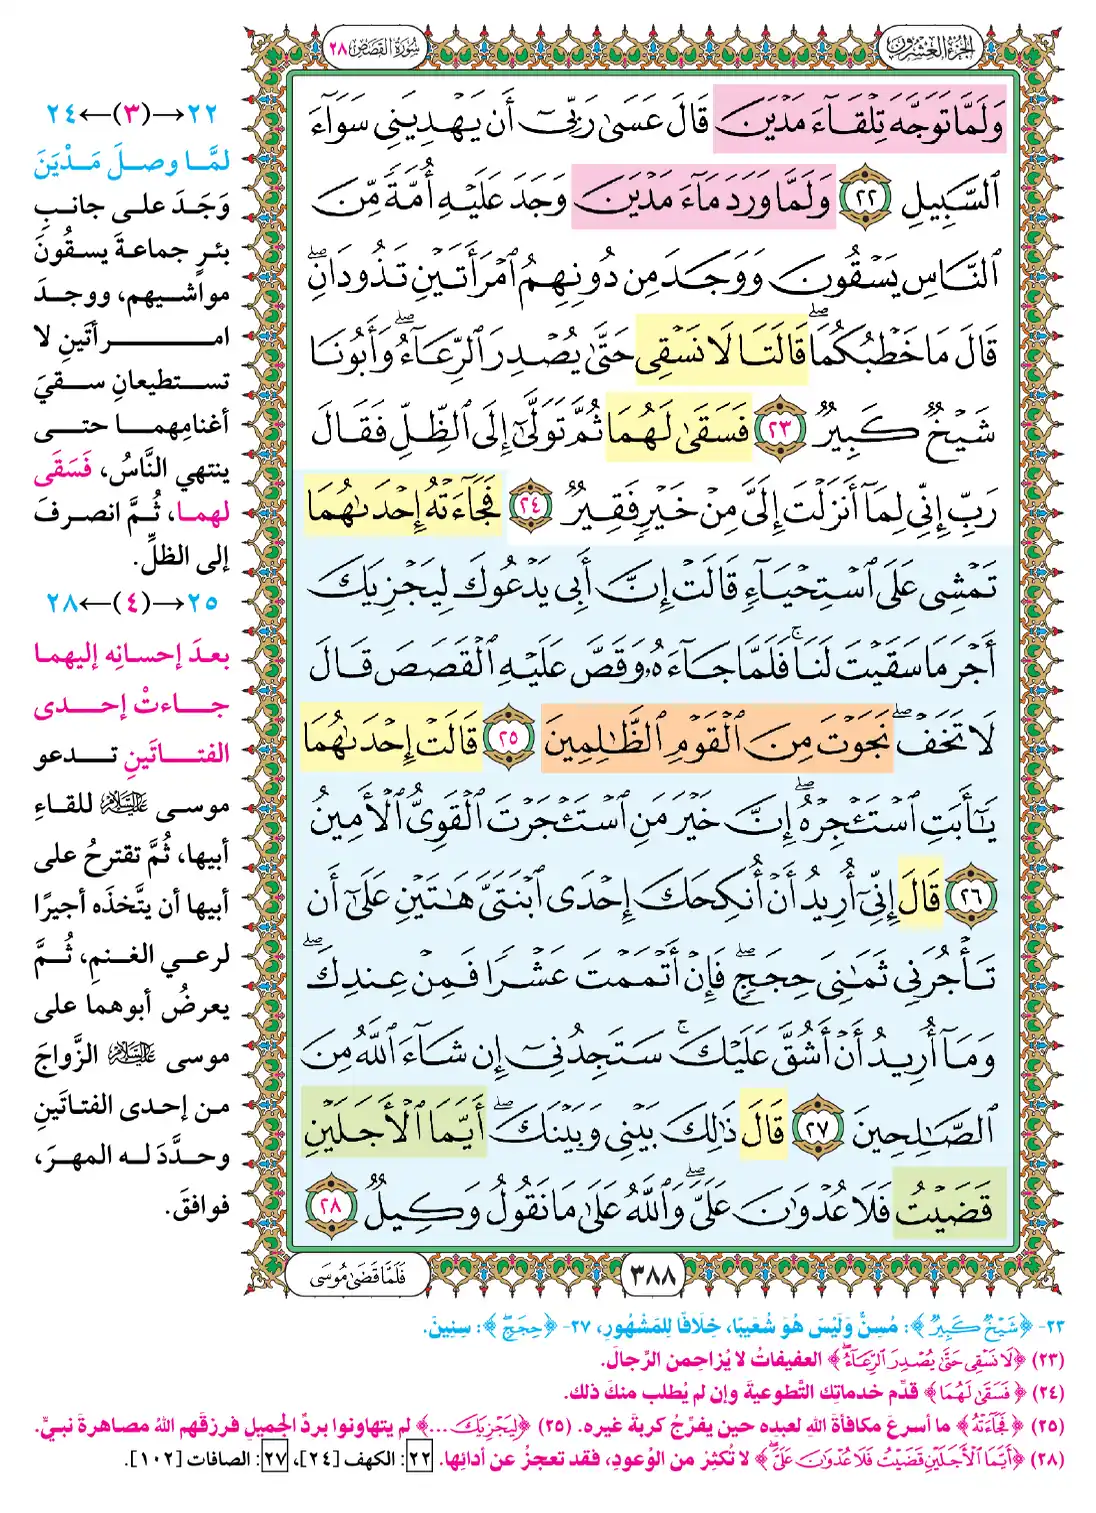 الجزء العشرون
سورة القصص ٢٨
وَلَمَّا تَوَجَّهَ تِلْقَآءَ مَدْيَنَ قَالَ عَسَىٰ رَبِّىٓ أَن يَهْدِيَنِى سَوَآءَ
ٱلسَّبِيلِ ٢٢ وَلَمَّا وَرَدَ مَآءَ مَدْيَنَ وَجَدَ عَلَيْهِ أُمَّةً مِّنَ
ٱلنَّاسِ يَسْقُونَ وَوَجَدَ مِن دُونِهِمُ ٱمْرَأَتَيْنِ تَذُودَانِۖ
قَالَ مَا خَطْبُكُمَاۖ قَالَتَا لَا نَسْقِى حَتَّىٰ يُصْدِرَ ٱلرِّعَآءُۖ وَأَبُونَا
شَيْخٌ كَبِيرٌ ٢٣ فَسَقَىٰ لَهُمَا ثُمَّ تَوَلَّىٰٓ إِلَى ٱلظِّلِّ فَقَالَ
رَبِّ إِنِّى لِمَآ أَنزَلْتَ إِلَىَّ مِنْ خَيْرٍ فَقِيرٌ ٢٤ فَجَآءَتْهُ إِحْدَىٰهُمَا
تَمْشِى عَلَى ٱسْتِحْيَآءٍ قَالَتْ إِنَّ أَبِى يَدْعُوكَ لِيَجْزِيَكَ
أَجْرَ مَا سَقَيْتَ لَنَاۚ فَلَمَّا جَآءَهُۥ وَقَصَّ عَلَيْهِ ٱلْقَصَصَ قَالَ
لَا تَخَفْۖ نَجَوْتَ مِنَ ٱلْقَوْمِ ٱلظَّٰلِمِينَ ٢٥ قَالَتْ إِحْدَىٰهُمَا
يَٰٓأَبَتِ ٱسْتَـْٔجِرْهُۖ إِنَّ خَيْرَ مَنِ ٱسْتَـْٔجَرْتَ ٱلْقَوِىُّ ٱلْأَمِينُ
٢٦ قَالَ إِنِّىٓ أُرِيدُ أَنْ أُنكِحَكَ إِحْدَى ٱبْنَتَىَّ هَٰتَيْنِ عَلَىٰٓ أَن
تَأْجُرَنِى ثَمَٰنِىَ حِجَجٍۖ فَإِنْ أَتْمَمْتَ عَشْرًا فَمِنْ عِندِكَۖ
وَمَآ أُرِيدُ أَنْ أَشُقَّ عَلَيْكَۚ سَتَجِدُنِىٓ إِن شَآءَ ٱللَّهُ مِنَ
ٱلصَّٰلِحِينَ ٢٧ قَالَ ذَٰلِكَ بَيْنِى وَبَيْنَكَۖ أَيَّمَا ٱلْأَجَلَيْنِ
قَضَيْتُ فَلَا عُدْوَٰنَ عَلَىَّۖ وَٱللَّهُ عَلَىٰ مَا نَقُولُ وَكِيلٌ ٢٨
٣٨٨
فَلَمَّا قَضَىٰ مُوسَى
٢٢→(٣)←٢٤
لمَّا وصلَ مَدْيَنَ
وَجَدَ على جانبِ
بئرٍ جماعةَ يسقُونَ
مواشيهم، ووجدَ
امرأتَينِ لا
تستطيعانِ سقيَ
أغنامِهما حتى
ينتهي النَّاسُ، فَسَقَى
لهما، ثُمَّ انصرفَ
إلى الظلِّ.
٢٥→(٤)←٢٨
بعدَ إحسانِه إليهما
جاءتْ إحدى
الفتاتَينِ تدعو
موسى عليه السلام للقاءِ
أبيها، ثُمَّ تقترحُ على
أبيها أن يتَّخذَه أجيرًا
لرعي الغنمِ، ثُمَّ
يعرضُ أبوهما على
موسى عليه السلام الزَّواجَ
من إحدى الفتاتَينِ
وحدَّدَ له المهرَ،
فوافقَ.
٢٣- ﴿شَيْخٌ كَبِيرٌ﴾: مُسِنٌّ وَلَيْسَ هُوَ شُعَيْبًا، خِلَافًا لِلْمَشْهُورِ، ٢٧- ﴿حِجَجٍ﴾: سِنِينَ.
(٢٣) ﴿لَا نَسْقِى حَتَّىٰ يُصْدِرَ ٱلرِّعَآءُ﴾ العفيفاتُ لا يُزاحمن الرِّجالَ.
(٢٤) ﴿فَسَقَىٰ لَهُمَا﴾ قدِّم خدماتِك التَّطوعيةَ وإن لم يُطلب منكَ ذلك.
(٢٥) ﴿فَجَآءَتْهُ﴾ ما أسرعَ مكافأةَ اللهِ لعبدِه حين يفرِّجُ كربةَ غيره. (٢٥) ﴿لِيَجْزِيَكَ...﴾ لم يتهاونوا بردِّ الجميلِ فرزقَهم اللهُ مصاهرةَ نبيٍّ.
(٢٨) ﴿أَيَّمَا ٱلْأَجَلَيْنِ قَضَيْتُ فَلَا عُدْوَٰنَ عَلَىَّ﴾ لا تُكثِرْ من الوُعودِ، فقد تعجزُ عن أدائِها. ٢٢: الكهف [٢٤]، ٢٧: الصافات [١٠٢].